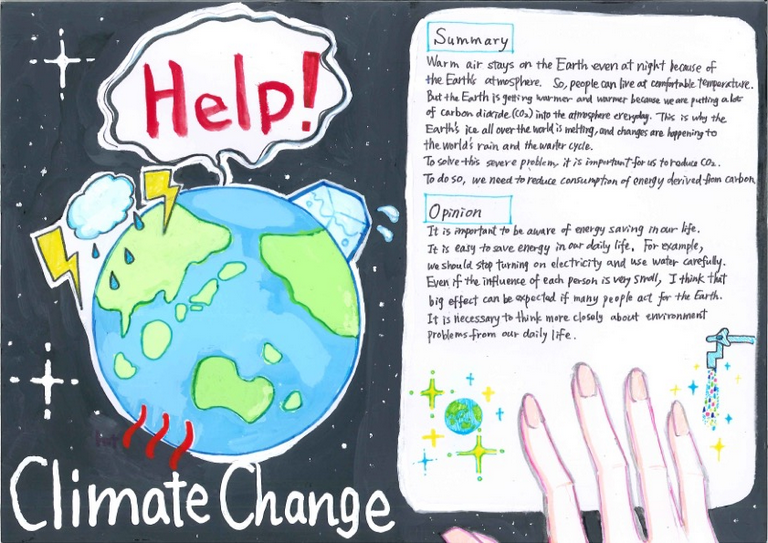 Help!
Climate Change
Summary
Warm air stays on the Earth even at night because of
the Earth's atmosphere. So, people can live at comfortable temperature.
But the Earth is getting warmer and warmer because we are putting a lot
of carbon dioxide (CO2) into the atmosphere everyday. This is why the
Earth's ice all over the world is melting, and changes are happening to
the world's rain and the water cycle.
To solve this severe problem, it is important for us to reduce CO2.
To do so, we need to reduce consumption of energy derived from carbon.
Opinion
It is important to be aware of energy saving in our life.
It is easy to save energy in our daily life. For example,
we should stop turning on electricity and use water carefully.
Even if the influence of each person is very small, I think that
big effect can be expected if many people act for the Earth.
It is necessary to think more closely about environment
problems from our daily life.